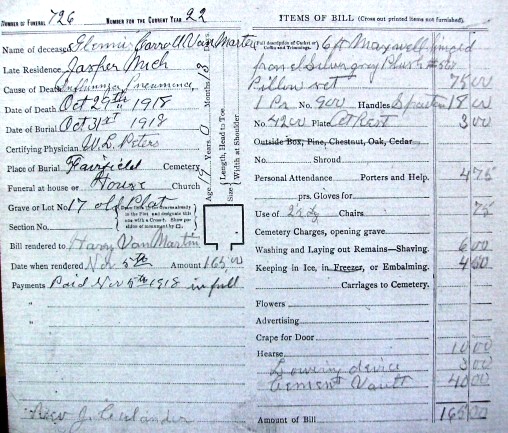 NUMBER OF FUNERAL 726 NUMBER FOR THE CURRENT YEAR 22
Name of deceased Glennie Carroll Van Martin
Late Residence Jasper Mich
Cause of Death Influenza Pneumonia
Date of Death Oct 29th 1918
Date of Burial Oct 31st 1918
Certifying Physician W. L. Peters
Place of Burial Fairfield Cemetery
Funeral at house or House Church
Grave or Lot No 17 old Plat
Section No.
Bill rendered to Harry Van Martin
Date when rendered Nov 5th Amount 165.00
Payments Paid Nov 5th 1918 in full
"
"
"
Rev J.
Age 19 Years 0 Months 8
Size { Length, Head to Toe.
Width at Shoulder
ITEMS OF BILL (Cross out printed items not furnished).
(Full description of Casket or Coffin and Trimmings) 6ft Maxwell
Silver grey Plush
Pillow set 75 00
1 Pr. No. 900 Handles 18 00
No. 4200 Plate At Rest 3 00
Outside Box, Pine, Chestnut, Oak, Cedar
No. Shroud
Personal Attendance Porters and Help. 4 75
prs. Gloves for
Use of 2 dz Chairs 75
Cemetery Charges, opening grave
Washing and Laying out Remains—Shaving. 6 00
Keeping in Ice, in Freezer, or Embalming. 4 50
Carriages to Cemetery.
Flowers
Advertising
Crape for Door
Hearse 10 00
Lowering device 3 00
Cement Vault 40 00
Amount of Bill 165 00